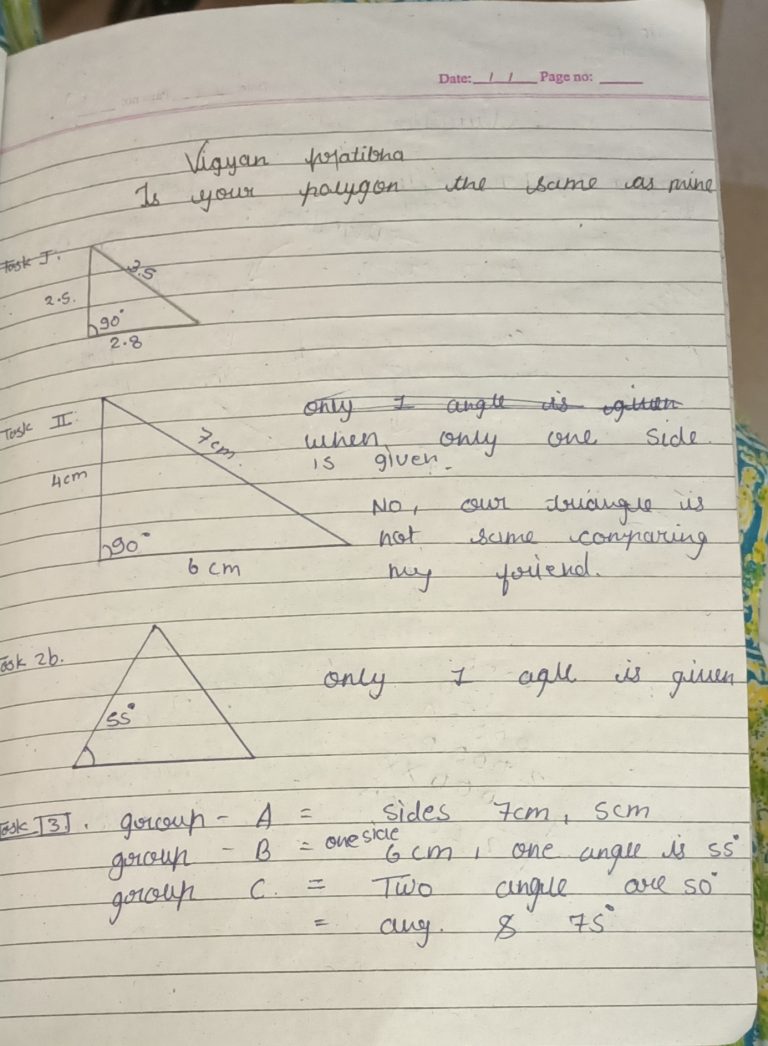 Date: / / Page no:
Vigyan pratibha
Is your polygon the same as mine
Task I.
3.5
2.5.
90°
2.8
Task II.
7cm.
4cm
90°
6 cm
only 1 angle is given
when only one side
is given.
No, our triangle is
not same comparing
my friend.
Task 2b.
55°
only 1 agle is given
Task [3]. group - A = sides 7cm, 5cm
group - B = one side 6cm, one angle is 55°
group C. = Two angle are 50°
= ang. 8 75°